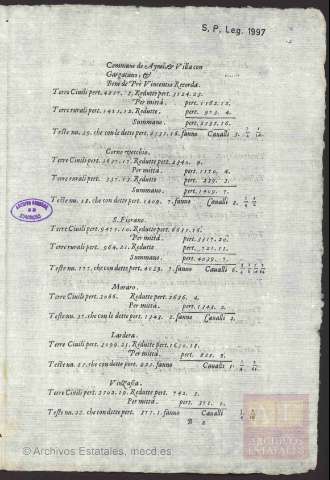 S. P. Leg. 1997
Commune de Aguol & Villa con
Gargatano, &
Beni de Pré Vincentio Recorda.
Terre Ciuili pert. 4227. 7. Redutte pert. 3124. 23.
Per mittà. pert. 1162. 12.
Terre rurali pert. 1421. 12. Redutte. pert. 973. 4.
Summano. pert. 2535. 16.
Teste nu. 29. che con le dette pert. 2535. 16. fanno Caualli 3.
Corno vecchio.
Terre Ciuili pert. 2637. 17. Redutte pert. 2340. 9.
Per mittà. pert. 1170. 4.
Terre rurali pert. 337. 17. Redutte pert. 239. 3.
Summano. pert. 1409. 7.
Teste nu. 18. che con dette pert. 1409. 7. fanno Caualli 2.
S. Fiorano.
Terre Ciuili pert. 9471. 10. Redutte pert. 6635. 16.
Per mittà. pert. 3317. 20.
Terre rurali pert. 964. 21. Redutte pert. 721. 11.
Summano. pert. 4039. 7.
Teste nu. 177. che con dette pert. 4039. 7. fanno Caualli 6.
Moraro.
Terre Ciuili pert. 2086. Redutte pert. 2686. 4.
Per mittà. pert. 1343. 2.
Teste nu. 37. che con le dette pert. 1343. 2. fanno Caualli 2.
Lardera.
Terre Ciuili pert. 2099. 23. Redutte pert. 1650. 18.
Per mittà. pert. 825. 9.
Teste nu. 21. che con dette pert. 825. fanno Caualli 1.
Terre Ciuili pert. 2702. 19. Redutte pert. 742. 3.
Per mittà. pert. 371. 1.
Teste nu. 22. che con dette pert. 371. 1. fanno Caualli
B 2
ARCHIVO GENERAL
DE
SIMANCAS
ARCHIVOS
ESTATALES
© Archivos Estatales, mecd.es